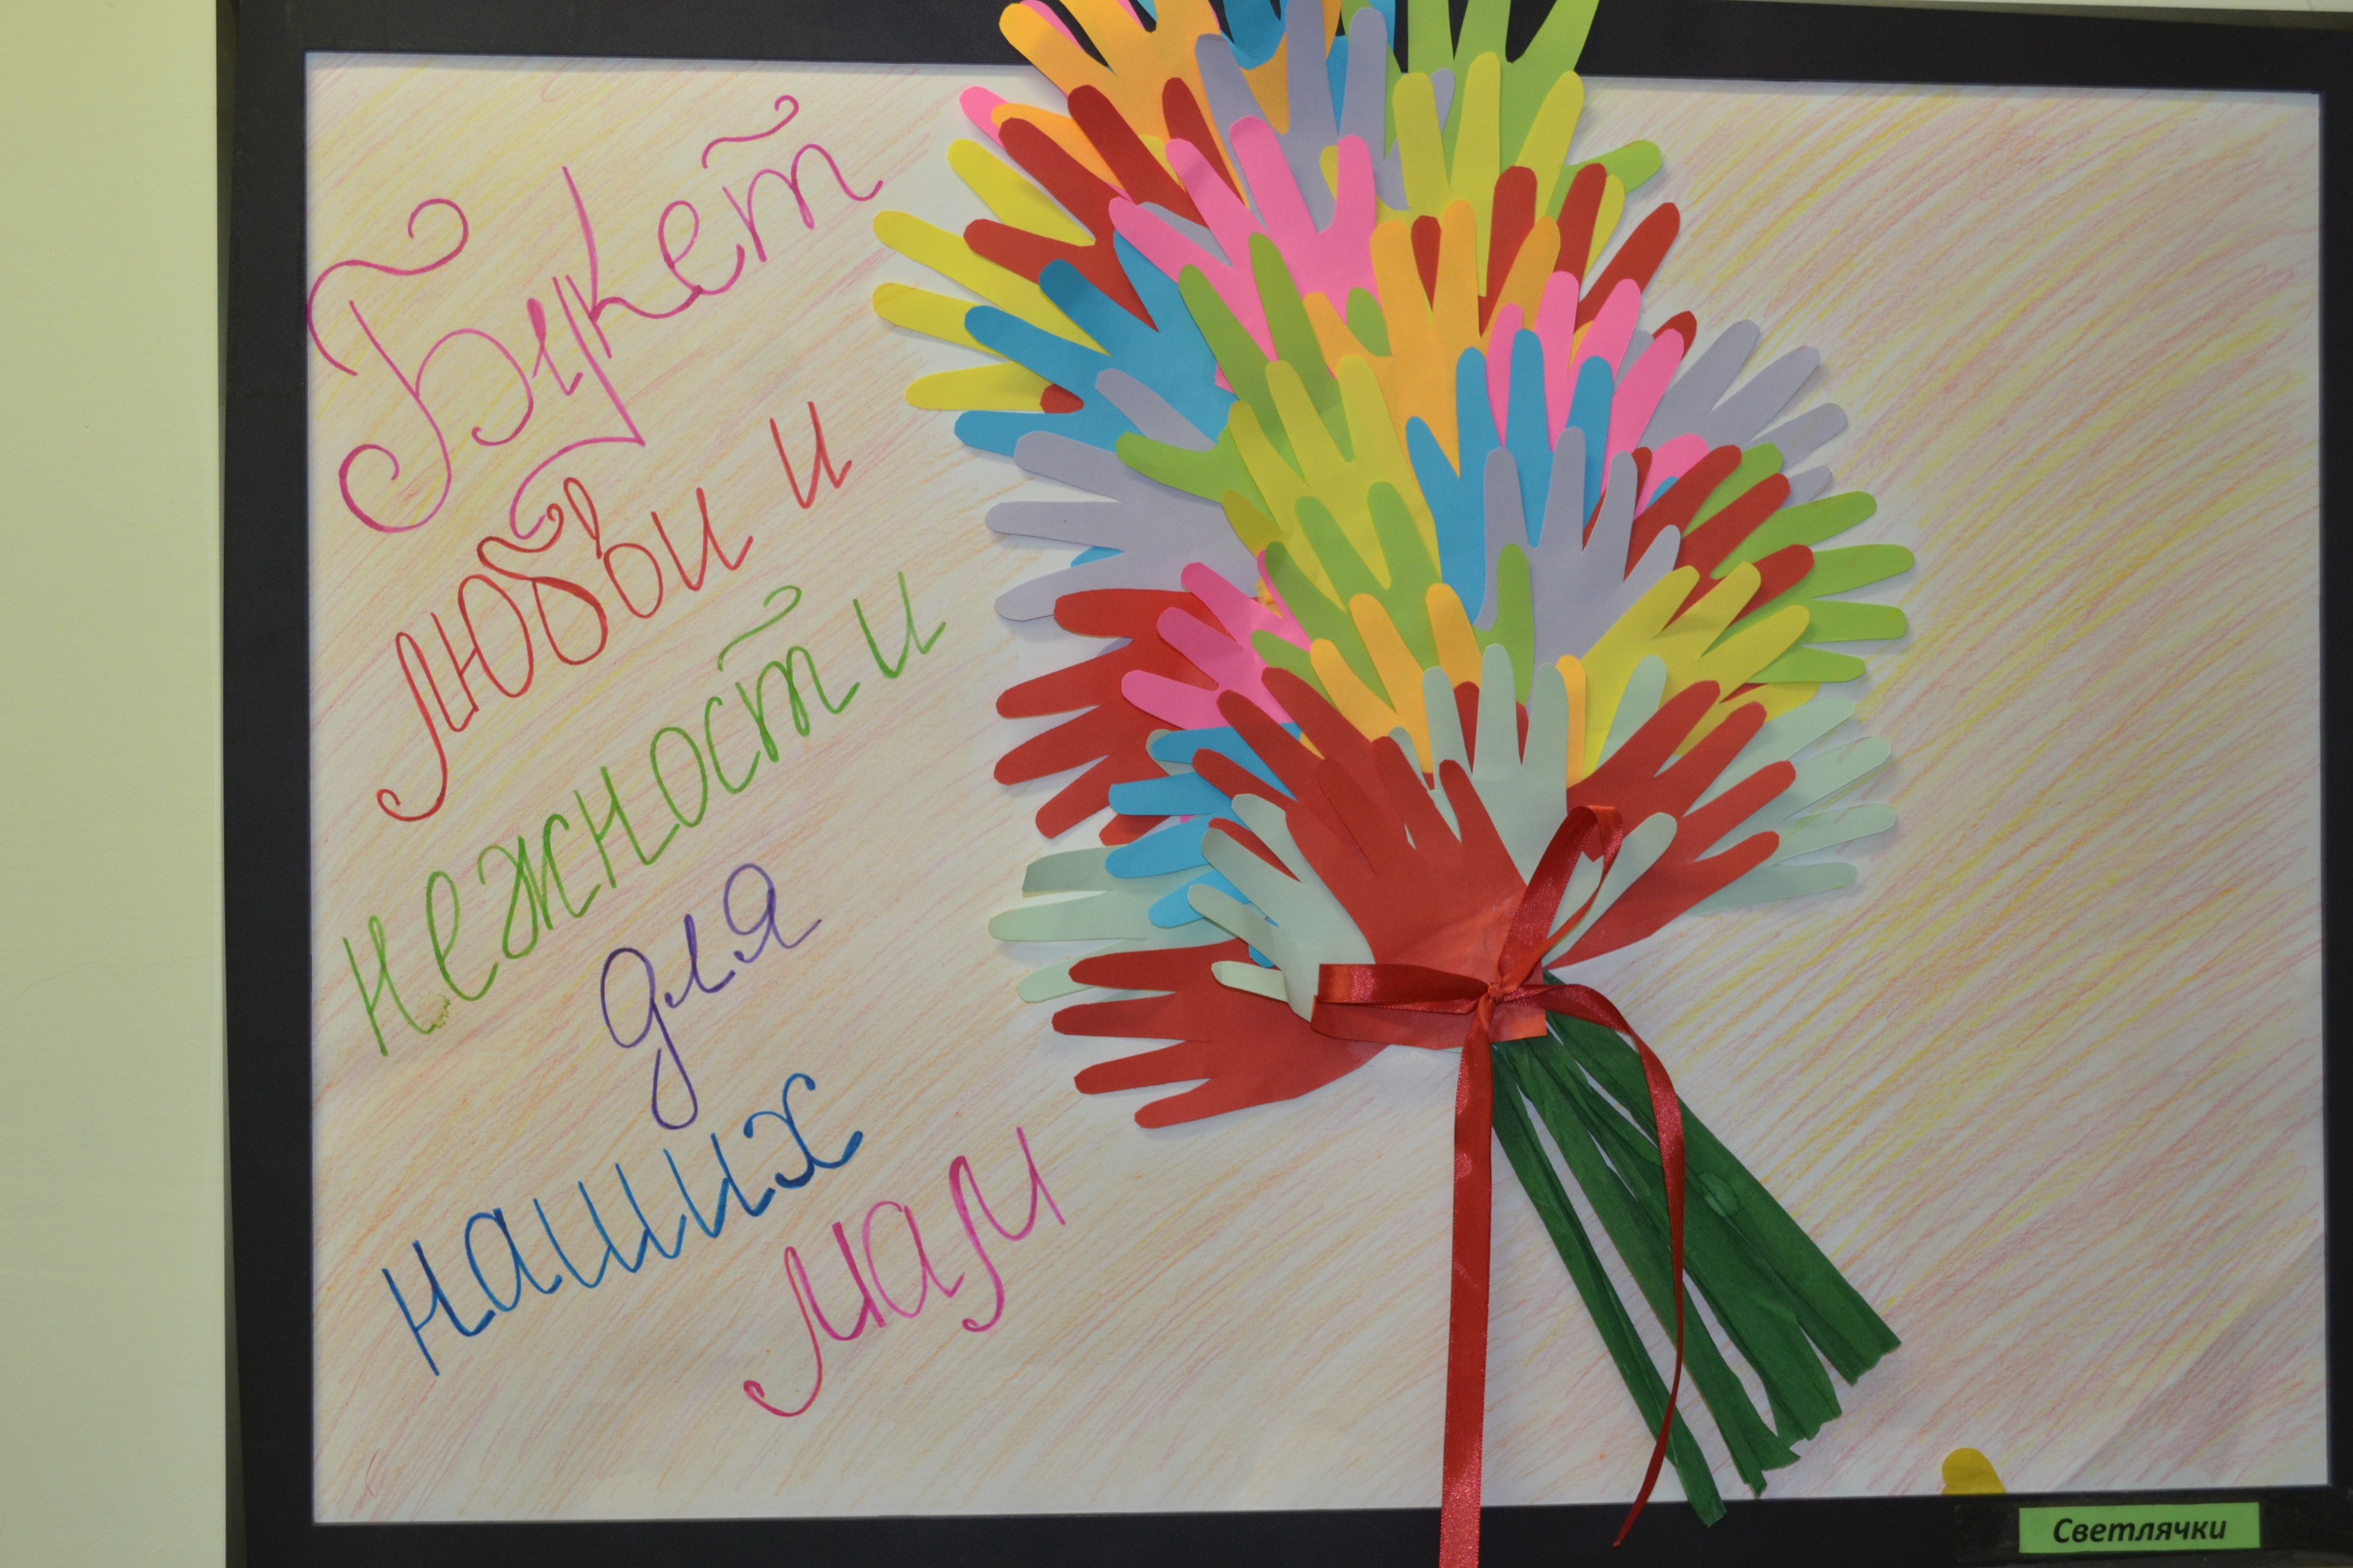 Букет
любви и
нежности
для
наших
мам
Светлячки